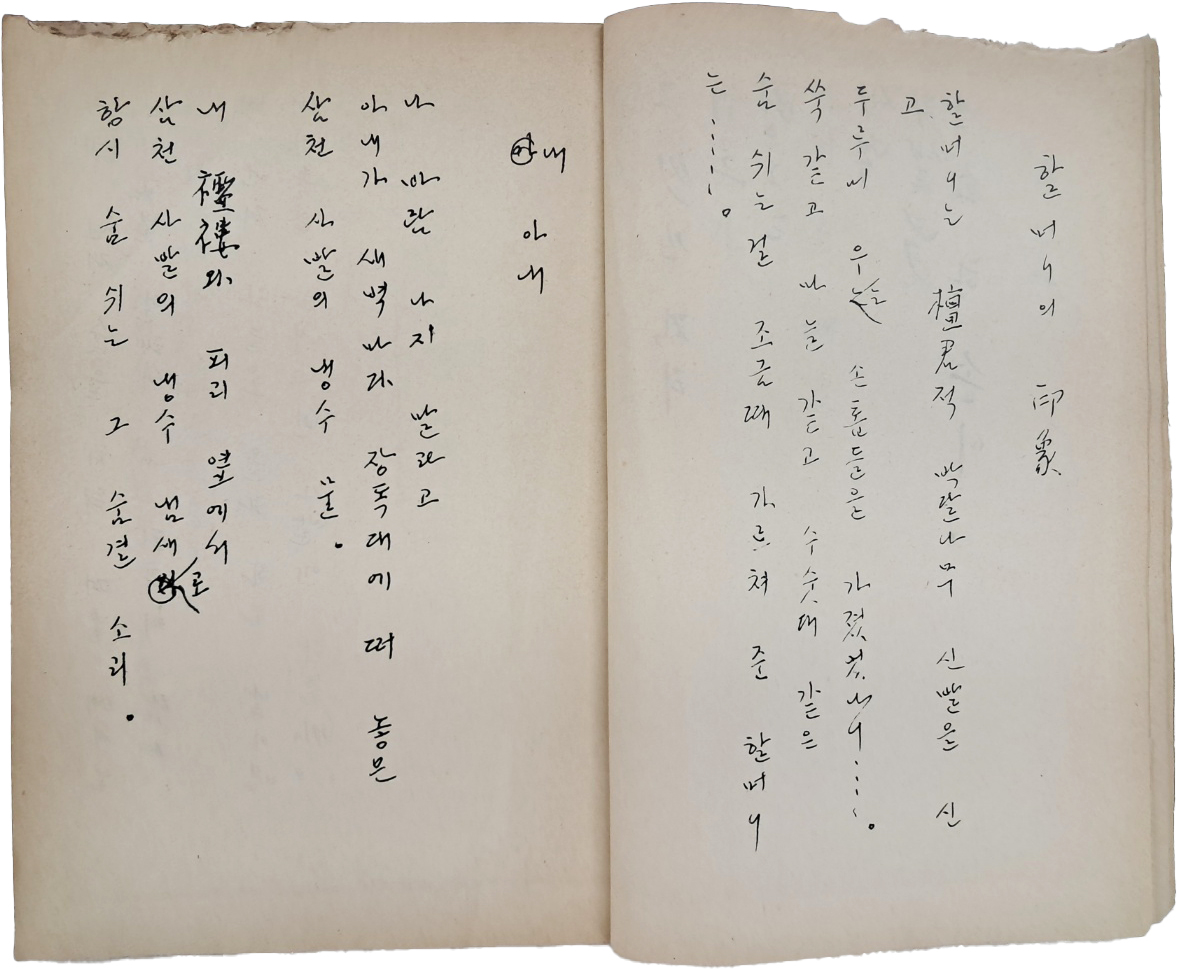 할머니의 印象
할머니는 檀君적 박달나무 신발을 신
고,
두루미 우는 손톱들을 가졌었나니……。
쑥 같고 마늘 같고 수숫대 같은
숨 쉬는 걸 조금때 가르쳐 준 할머니
는……。
내 아내
나 바람 나지 말라고
아내가 새벽마다 장독대에 떠 놓은
삼천 사발의 냉수 물。
내 襤褸와 피리 옆에서
삼천 사발의 냉수 냄새로
항시 숨 쉬는 그 숨결 소리。